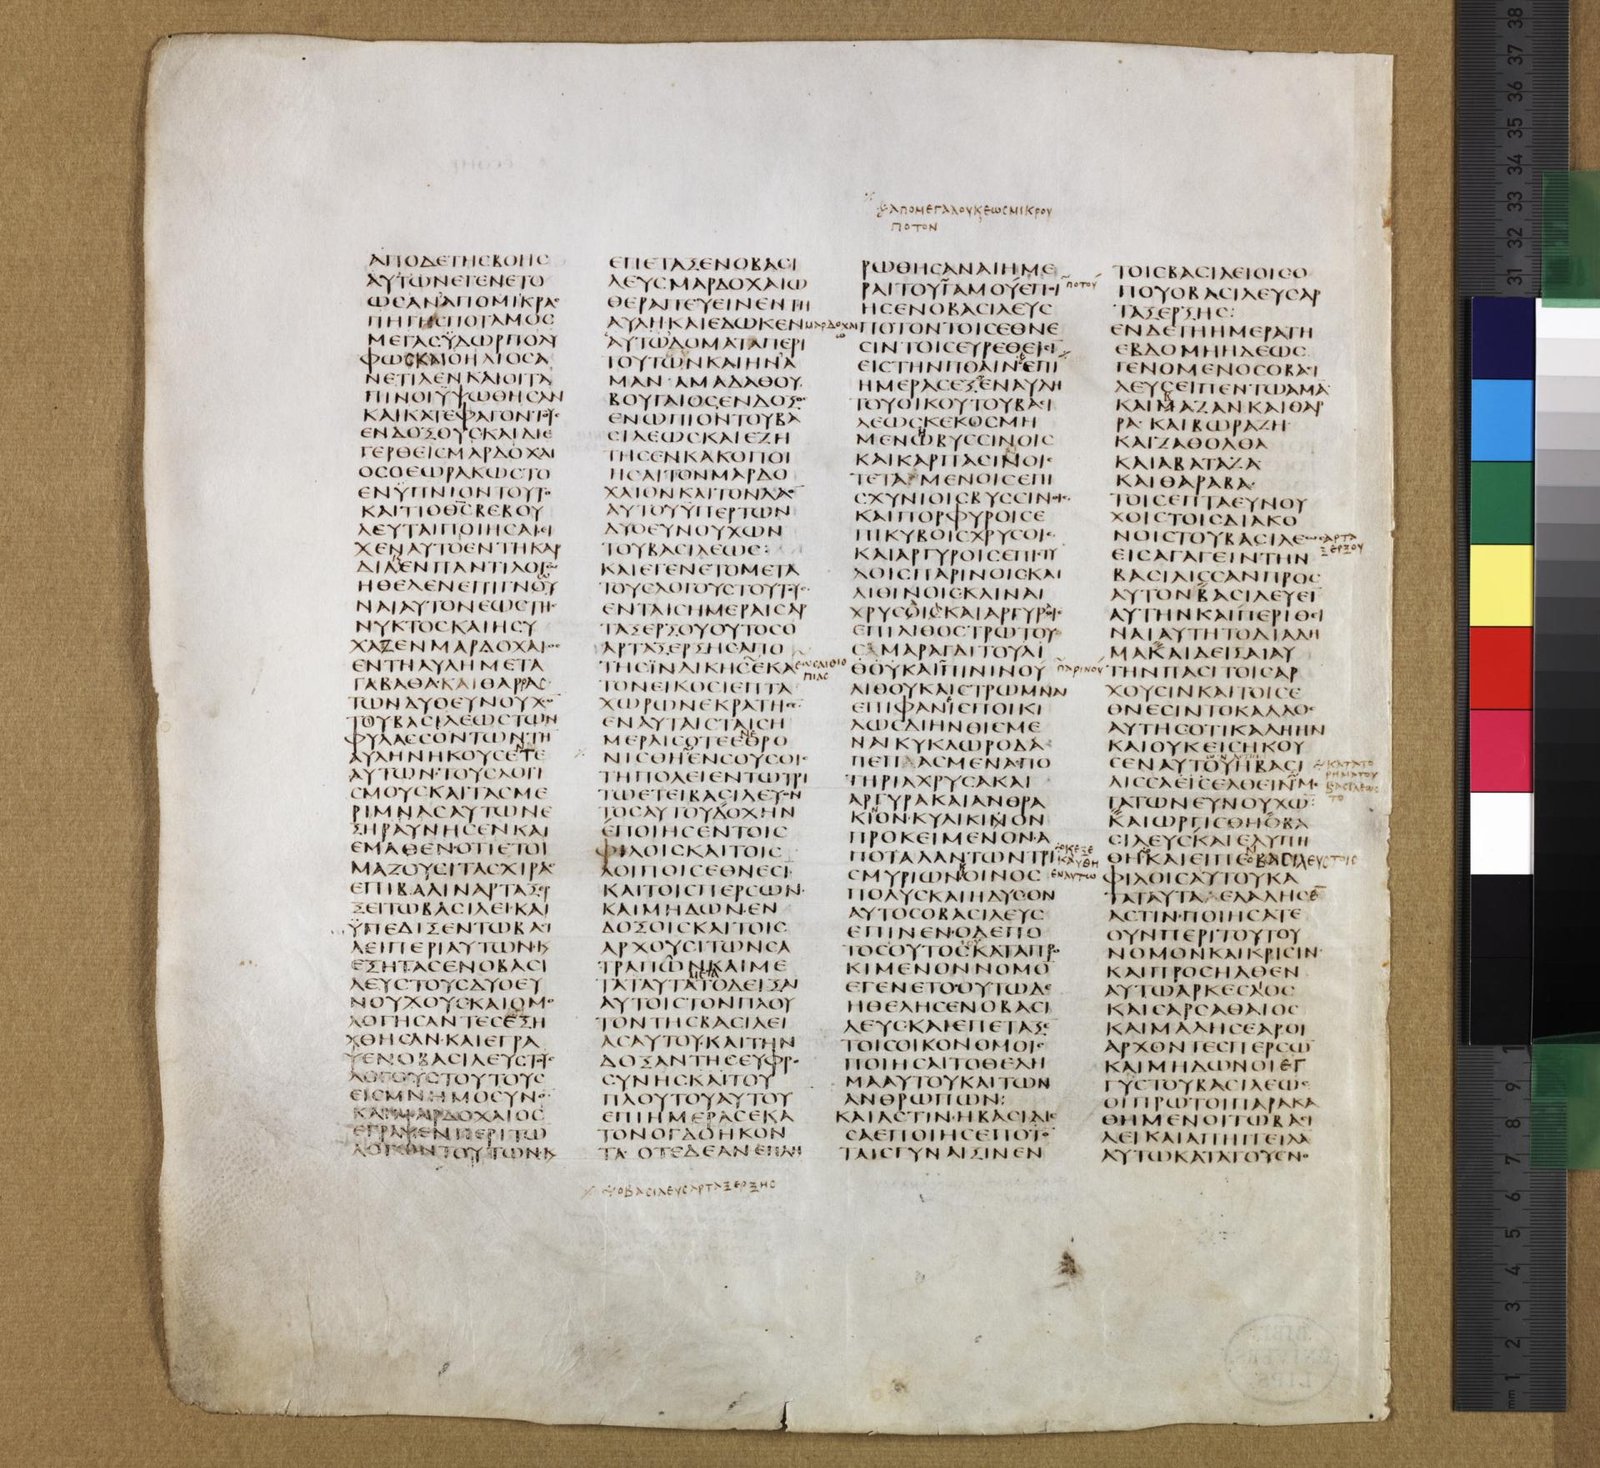 ΑΠΟΔΕΤΗСΒΟΗС
ΑΥΤΩΝΕΓΕΝΕΤΟ
ΩСΑΝΑΠΟΜΙΚΡΑ
ΠΗΓΗСΠΟΤΑΜΟС
ΜΕΓΑСΫΔΩΡΠΟΛΥ
ΦΩСΚΑΙΟΗΛΙΟСΑ
ΝΕΤΙΛΕΝΚΑΙΟΙΤΑ
ΠΙΝΟΙΥΨΩΘΗСΑΝ
ΚΑΙΚΑΤΕΦΑΓΟΝ
ΕΝΔΟΞΟΥСΚΑΙΔΙΕ
ΓΕΡΘΕΙСΜΑΡΔΟΧΑΙ
ΟСΟΕΩΡΑΚΩСΤΟ
ΕΝΫΠΝΙΟΝΤΟΥΤ
ΚΑΙΤΙΟΘСΒΕΒΟΥ
ΛΕΥΤΑΙΠΟΙΗСΑΙ
ΧΕΝΑΥΤΟΕΝΤΗΚΑΡ
ΔΙΑΕΝΠΑΝΤΙΛΟΓ
ΗΘΕΛΕΝΕΠΙΓΝΟΥ
ΝΑΙΑΥΤΟΝΕΩСΤΗ
ΝΥΚΤΟСΚΑΙΗСΥ
ΧΑΖΕΝΜΑΡΔΟΧΑΙ
ΕΝΤΗΑΥΛΗΜΕΤΑ
ΓΑΒΑΘΑ·ΚΑΙΘΑΡΡΑС
ΤΩΝΔΥΟΕΥΝΟΥΧ
ΤΟΥΒΑСΙΛΕΩСΤΩΝ
ΦΥΛΑССΟΝΤΩΝΤΗ
ΑΥΛΗΝΗΚΟΥСΕΤΕ
ΑΥΤΩΝ·ΤΟΥСΛΟΓΙ
СΜΟΥСΚΑΙΤΑСΜΕ
ΡΙΜΝΑСΑΥΤΩΝΕ
ΞΗΡΑΥΝΗСΕΝΚΑΙ
ΕΜΑΘΕΝ·ΟΤΙΕΤΟΙ
ΜΑΖΟΥСΙΤΑСΧΙΡΑ
ΕΠΙΒΑΛΙΝΑΡΤΑΞΕΡ
ΞΕΙΤΩΒΑСΙΛΕΙ·ΚΑΙ
ΫΠΕΔΙΞΕΝΤΩΒΑ
ΛΕΙΠΕΡΙΑΥΤΩΝ·Κ
ΕΞΗΤΑСΕΝΟΒΑСΙ
ΛΕΥСΤΟΥСΔΥΟΕΥ
ΝΟΥΧΟΥСΚΑΙΟΜΟ
ΛΟΓΗСΑΝΤΕСΕΞΗ
ΧΘΗСΑΝ·ΚΑΙΕΓΡΑ
ΨΕΝΟΒΑСΙΛΕΥСΤ
ΛΟΓΟΥСΤΟΥΤΟΥС
ΕΙСΜΝΗΜΟСΥΝ
ΚΑΙΜΑΡΔΟΧΑΙΟС
ΕΓΡΑΨΕΝΠΕΡΙΤΩ
ΛΟΓΩΝΤΟΥΤΩΝ·Κ
ΕΠΕΤΑΞΕΝΟΒΑСΙ
ΛΕΥСΜΑΡΔΟΧΑΙΩ
ΘΕΡΑΠΕΥΕΙΝΕΝΤΗ
ΑΥΛΗΚΑΙΕΔΩΚΕΝ
ΜΑΡΔΟΧΑΙ
Ω
ΑΥΤΩΔΟΜΑΤΑΠΕΡΙ
ΤΟΥΤΩΝΚΑΙΗΝΑ
ΜΑΝ·ΑΜΑΔΑΘΟΥ
ΒΟΥΓΑΙΟСΕΝΔΟΞΟ
ΕΝΩΠΙΟΝΤΟΥΒΑ
СΙΛΕΩСΚΑΙΕΖΗ
ΤΗСΕΝΚΑΚΟΠΟΙ
ΗСΑΙΤΟΝΜΑΡΔΟ
ΧΑΙΟΝΚΑΙΤΟΝΛΑ
ΑΥΤΟΥΥΠΕΡΤΩΝ
ΔΥΟΕΥΝΟΥΧΩΝ
ΤΟΥΒΑСΙΛΕΩС:
ΚΑΙΕΓΕΝΕΤΟΜΕΤΑ
ΤΟΥСΛΟΓΟΥСΤΟΥΤ
ΕΝΤΑΙСΗΜΕΡΑΙСΑΡ
ΤΑΞΕΡΞΟΥΟΥΤΟСΟ
ΑΡΤΑΞΕΡΞΗСΑΠΟ
ΤΗСΪΝΔΙΚΗСΕΚΑ
ΤΟΝΕΙΚΟСΙΕΠΤΑ
ΧΩΡΩΝΕΚΡΑΤΗ
ΕΝΑΥΤΑΙСΤΑΙСΗ
ΜΕΡΑΙСΟΤΕΕΘΡΟ
ΝΙСΘΗΕΝСΟΥСΟΙ
ΤΗΠΟΛΕΙΕΝΤΩΤΡΙ
ΤΩΕΤΕΙΒΑСΙΛΕΥ
ΤΟСΑΥΤΟΥΔΟΧΗΝ
ΕΠΟΙΗСΕΝΤΟΙС
ΦΙΛΟΙСΚΑΙΤΟΙС
ΛΟΙΠΟΙСΕΘΝΕСΙ
ΚΑΙΤΟΙСΠΕΡСΩΝ
ΚΑΙΜΗΔΩΝ·ΕΝ
ΔΟΞΟΙСΚΑΙΤΟΙС
ΑΡΧΟΥСΙΤΩΝСΑ
ΤΡΑΠΩΝΚΑΙΜΕ
ΤΑΤΑΥΤΑΤΟΔΕΙΞΑΙ
ΑΥΤΟΙСΤΟΝΠΛΟΥ
ΤΟΝΤΗСΒΑСΙΛΕΙ
ΑСΑΥΤΟΥ·ΚΑΙΤΗΝ
ΔΟΞΑΝΤΗСΕΥΦΡ
СΥΝΗСΚΑΙΤΟΥ
ΠΛΟΥΤΟΥΑΥΤΟΥ
ΕΠΙΗΜΕΡΑСΕΚΑ
ΤΟΝΟΓΔΟΗΚΟΝ
ΤΑ·ΟΤΕΔΕΑΝΕΠΛΗ
ΟΒΑСΙΛΕΥСΑΡΤΑΞΕΡΞΗС
ΑΠΟΜΕΓΑΛΟΥΚΕΩСΜΙΚΡΟΥ
ΠΟΤΟΝ
ΡΩΘΗСΑΝΑΙΗΜΕ
ΡΑΙΤΟΥΓΑΜΟΥΕΠΟΙ
ΠΟΤΟΥ
ΗСΕΝΟΒΑСΙΛΕΥС
ΠΟΤΟΝΤΟΙСΕΘΝΕ
СΙΝΤΟΙСΕΥΡΕΘΕΙСΙ
ΕΙСΤΗΝΠΟΛΙΝΕΠΙ
ΗΜΕΡΑСΕΞΕΝΑΥΛΗ
ΤΟΥΟΙΚΟΥΤΟΥΒΑСΙ
ΛΕΩСΚΕΚΟСΜΗ
ΜΕΝΩΒΥССΙΝΟΙС
ΚΑΙΚΑΡΠΑСΙΝΟΙ
ΤΕΤΑ·ΜΕΝΟΙСΕΠΙ
СΧΥΝΙΟΙСΒΥССΙΝ
ΚΑΙΠΟΡΦΥΡΟΙСΕ
ΠΙΚΥΒΟΙСΧΡΥСΟΙ
ΚΑΙΑΡΓΥΡΟΙСΕΠΙСΤΥ
ΛΟΙСΠΑΡΙΝΟΙСΚΑΙ
ΛΙΘΙΝΟΙСΚΛΙΝΑΙ
ΧΡΥСΑΙСΚΑΙΑΡΓΥΡ
ΕΠΙΛΙΘΟСΤΡΩΤΟΥ
СΜΑΡΑΓΔΙΤΟΥΛΙ
ΘΟΥΚΑΙΠΙΝΙΝΟΥ
ΠΑΡΙΝΟΥ
ΛΙΘΟΥΚΑΙСΤΡΩΜΝΗ
ΕΠΙΦΑΝΙСΠΟΙΚΙ
ΛΩСΔΙΗΝΘΙСΜΕ
ΝΑΙΚΥΚΛΩΡΟΔΑ
ΠΕΠΑСΜΕΝΑΠΟ
ΤΗΡΙΑΧΡΥСΑΚΑΙ
ΑΡΓΥΡΑΚΑΙΑΝΘΡΑ
ΚΙΟΝ·ΚΥΛΙΚΙΝΟΝ
ΠΡΟΚΕΙΜΕΝΟΝΑ
ΠΟΤΑΛΑΝΤΩΝΤΡΙ
СΜΥΡΙΩΝΟΙΝΟС
ΠΟΛΥСΚΑΙΗΔΥСΟΝ
ΑΥΤΟСΟΒΑСΙΛΕΥС
ΕΠΙΝΕΝ·ΟΔΕΠΟ
ΤΟСΟΥΤΟСΚΑΤΑΠΡ
ΚΙΜΕΝΟΝΝΟΜΟ
ΕΓΕΝΕΤΟΟΥΤΩΔΕ
ΗΘΕΛΗСΕΝΟΒΑСΙ
ΛΕΥСΚΑΙΕΠΕΤΑΞΕ
ΤΟΙСΟΙΚΟΝΟΜΟΙ
ΠΟΙΗСΑΙΤΟΘΕΛΗ
ΜΑΑΥΤΟΥΚΑΙΤΩΝ
ΑΝΘΡΩΠΩΝ:
ΚΑΙΑСΤΙΝ·ΗΒΑСΙΛΙС
СΑΕΠΟΙΗСΕΠΟΤ
ΤΑΙСΓΥΝΑΙΞΙΝΕΝ
ΤΟΙСΒΑСΙΛΕΙΟΙСΟ
ΠΟΥΟΒΑСΙΛΕΥСΑΡ
ΤΑΞΕΡΞΗС:
ΕΝΔΕΤΗΗΜΕΡΑΤΗ
ΕΒΔΟΜΗΗΔΕΩС
ΓΕΝΟΜΕΝΟСΟΒΑСΙ
ΛΕΥСΕΙΠΕΝΤΩΑΜΑ
ΚΑΙΜΑΖΑΝΚΑΙΘΑΡ
ΡΑ·ΚΑΙΒΩΡΑΖΗ
ΚΑΙΖΑΘΟΛΘΑ
ΚΑΙΑΒΑΤΑΖΑ
ΚΑΙΘΑΡΑΒΑ
ΤΟΙСΕΠΤΑΕΥΝΟΥ
ΧΟΙСΤΟΙСΔΙΑΚΟ
ΝΟΙСΤΟΥΒΑСΙΛΕΩС
ΑΡΤΑ
ΞΕΡΞΟΥ
ΕΙСΑΓΑΓΕΙΝΤΗΝ
ΒΑСΙΛΙССΑΝΠΡΟС
ΑΥΤΟΝΒΑСΙΛΕΥΕΙ
ΑΥΤΗΝΚΑΙΠΕΡΙΘΕΙ
ΝΑΙΑΥΤΗΤΟΔΙΑΔΗ
ΜΑΚΑΙΔΕΙΞΑΙΑΥ
ΤΗΝΠΑСΙΤΟΙСΑΡ
ΧΟΥСΙΝΚΑΙΤΟΙСΕ
ΘΝΕСΙΝΤΟΚΑΛΛΟ
ΑΥΤΗСΟΤΙΚΑΛΗΗΝ
ΚΑΙΟΥΚΕΙСΗΚΟΥ
СΕΝΑΥΤΟΥΗΒΑСΙ
ΛΙССΑΕΙСΕΛΘΕΙΝΜ
ΤΑΤΩΝΕΥΝΟΥΧΩ:
ΚΑΙΩΡΓΙСΘΗΟΒΑ
СΙΛΕΥСΚΑΙΕΛΥΠΗ
ΘΗΚΑΙΕΙΠΕΟΒΑСΙΛΕΥСΤΟΙС
ΦΙΛΟΙСΑΥΤΟΥΚΑ
ΤΑΤΑΥΤΑΕΛΑΛΗСΕ
ΑСΤΙΝ·ΠΟΙΗСΑΤΕ
ΟΥΝΠΕΡΙΤΟΥΤΟΥ
ΝΟΜΟΝΚΑΙΚΡΙСΙΝ
ΚΑΙΠΡΟСΗΛΘΕΝ
ΑΥΤΩΑΡΚΕСΑΟС
ΚΑΙСΑΡСΑΘΑΙΟС
ΚΑΙΜΑΛΗСΕΑΡΟΙ
ΑΡΧΟΝΤΕСΠΕΡСΩ
ΚΑΙΜΗΔΩΝΟΙΕΓ
ΓΥСΤΟΥΒΑСΙΛΕΩС
ΟΙΠΡΩΤΟΙΠΑΡΑΚΑ
ΘΗΜΕΝΟΙΤΩΒΑСΙ
ΛΕΙΚΑΙΑΠΗΓΓΕΙΛΑ
ΑΥΤΩΚΑΤΑΤΟΥСΝΟ